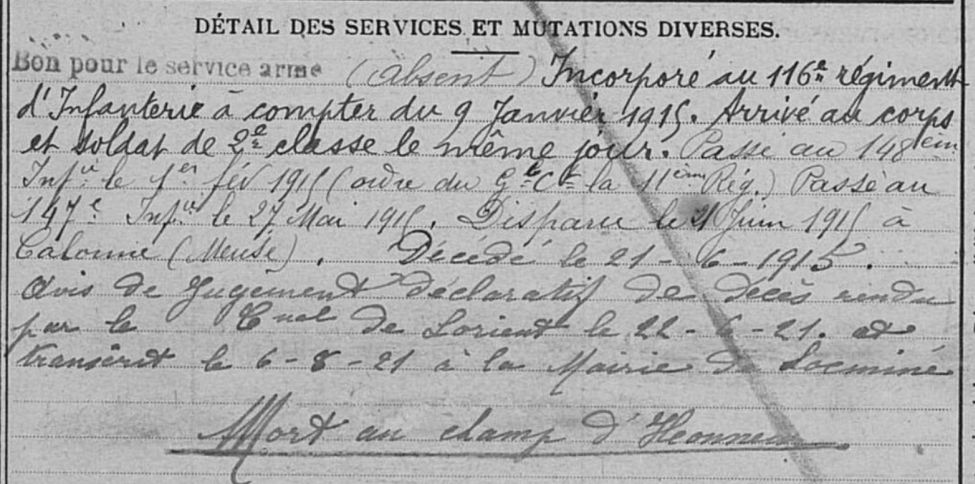 DÉTAIL DES SERVICES ET MUTATIONS DIVERSES.
Bon pour le service armé (absent) Incorporé au 116e régiment
d'Infanterie à compter du 9 Janvier 1915. Arrivé au corps
et soldat de 2e classe le même jour. Passé au 148em
Infie le 1er fév 1915 (ordre du Gt Ct la 11ème Rég.) Passé au
147e Infie le 27 Mai 1915. Disparu le 21 Juin 1915 à
Calonne (Meuse). Décédé le 21-6-1915.
Avis de Jugement déclaratif de décès rendu
par le Cnal de Lorient le 22-6-21. et
transcrit le 6-8-21 à la Mairie de Locminé
Mort au champ d'Honneur